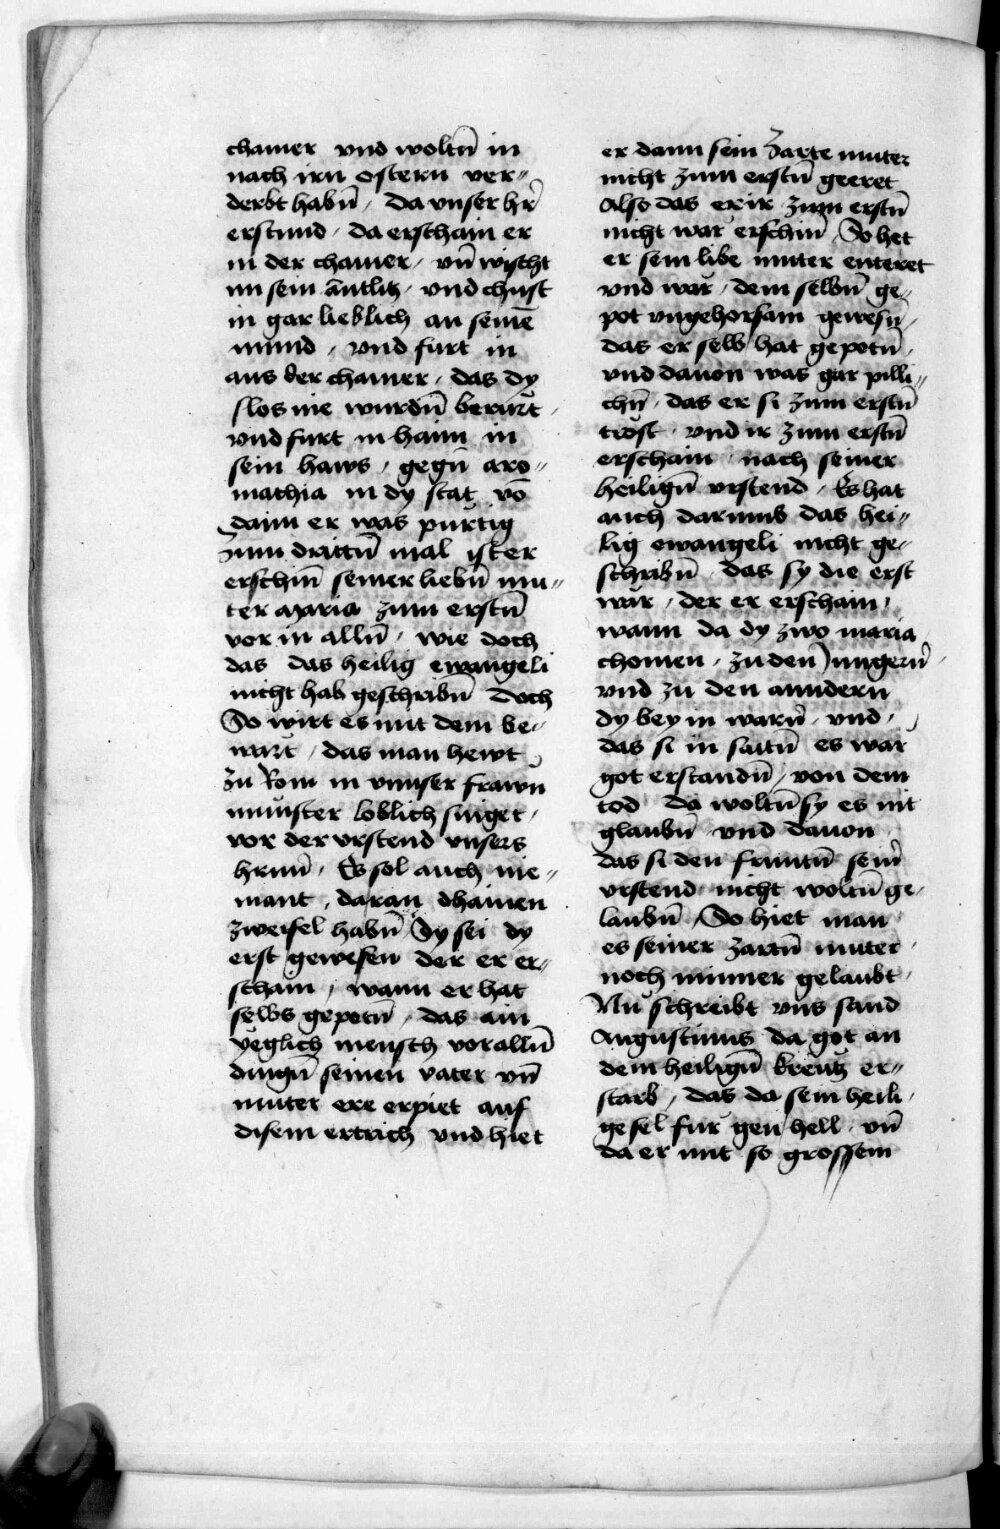 chamer vnd woltn̄ in
nach irn ostern ver〃
derbt habn̄ / Da vnser hr̄
erstund / da erschain er
in der chamer / vn̄ wischt
im sein antlitz / vnd chust
in gar lieblich an seinē
mund / vnd furt in
aus der chamer / das dy
slos nie wurdn̄ berürt /
vnd furt in haim in
sein haws / gegn̄ aro〃
mathia in dy stat vō
dann er was pürtig
zum drittn̄ mal ist er
erschin̄ seiner liebn̄ mu〃
ter Maria zum erstn̄
vor in alln̄ / wie doch
das das heilig ewangeli
nicht hab geschribn̄ Doch
So wirt es mit dem be〃
wärt / das man hewt
zu Rom in vnnser frawn̄
münster loblich singet /
vor der vrstend vnsers
hrnn̄ / Es sol auch nie〃
mant / daran dhainen
zweifel habn̄ Sy sei dy
erst gewesen der er er〃
schain / wann er hat
selbs gepotn̄ / das ain
yeglich mensch vor alln̄
dingn̄ seinen vater vn̄
muter ere erpiet auf
disem ertrich vnd hiet
er dann sein zarte muter
nicht zum erstn̄ geeret
Also das er ir zum erstn̄
nicht wär erschin̄ So het
er sein libe muter enteret
vnd wär / dem selbn̄ ge〃
pot vngehorsam gewesn̄ /
das er selb hat gepotn̄ /
vnd dauon was gar pilli〃
chn̄ / das er si zum erstn̄
tröst / vnd ir zum erstn̄
erschain / nach seiner
heilign̄ vrstend / Es hat
auch darumb das hei〃
lig ewangeli nicht ge〃
schribn̄ / das sy die erst
wär / der er erschain /
wann da dy zwo maria
chomen / zu den Jungern̄ /
vnd zu den anndern
dy bey in warn̄ / vnd /
das si in saitn̄ es wär
got erstandn̄ / von dem
tod da woltn̄ sy es nit
glaubn̄ vnd dauon
das si den frāutn̄ sein̄
vrstend nicht woltn̄ ge〃
laubn̄ / So hiet man
es seiner zartn̄ muter /
noch minner gelaubt /
Nu schreibt vns sand
Augustinus da got an
dem heilign̄ kreutz er〃
starb / das da sein heili /
ge sel fur gen hell / vn̄
da er mit so grossem